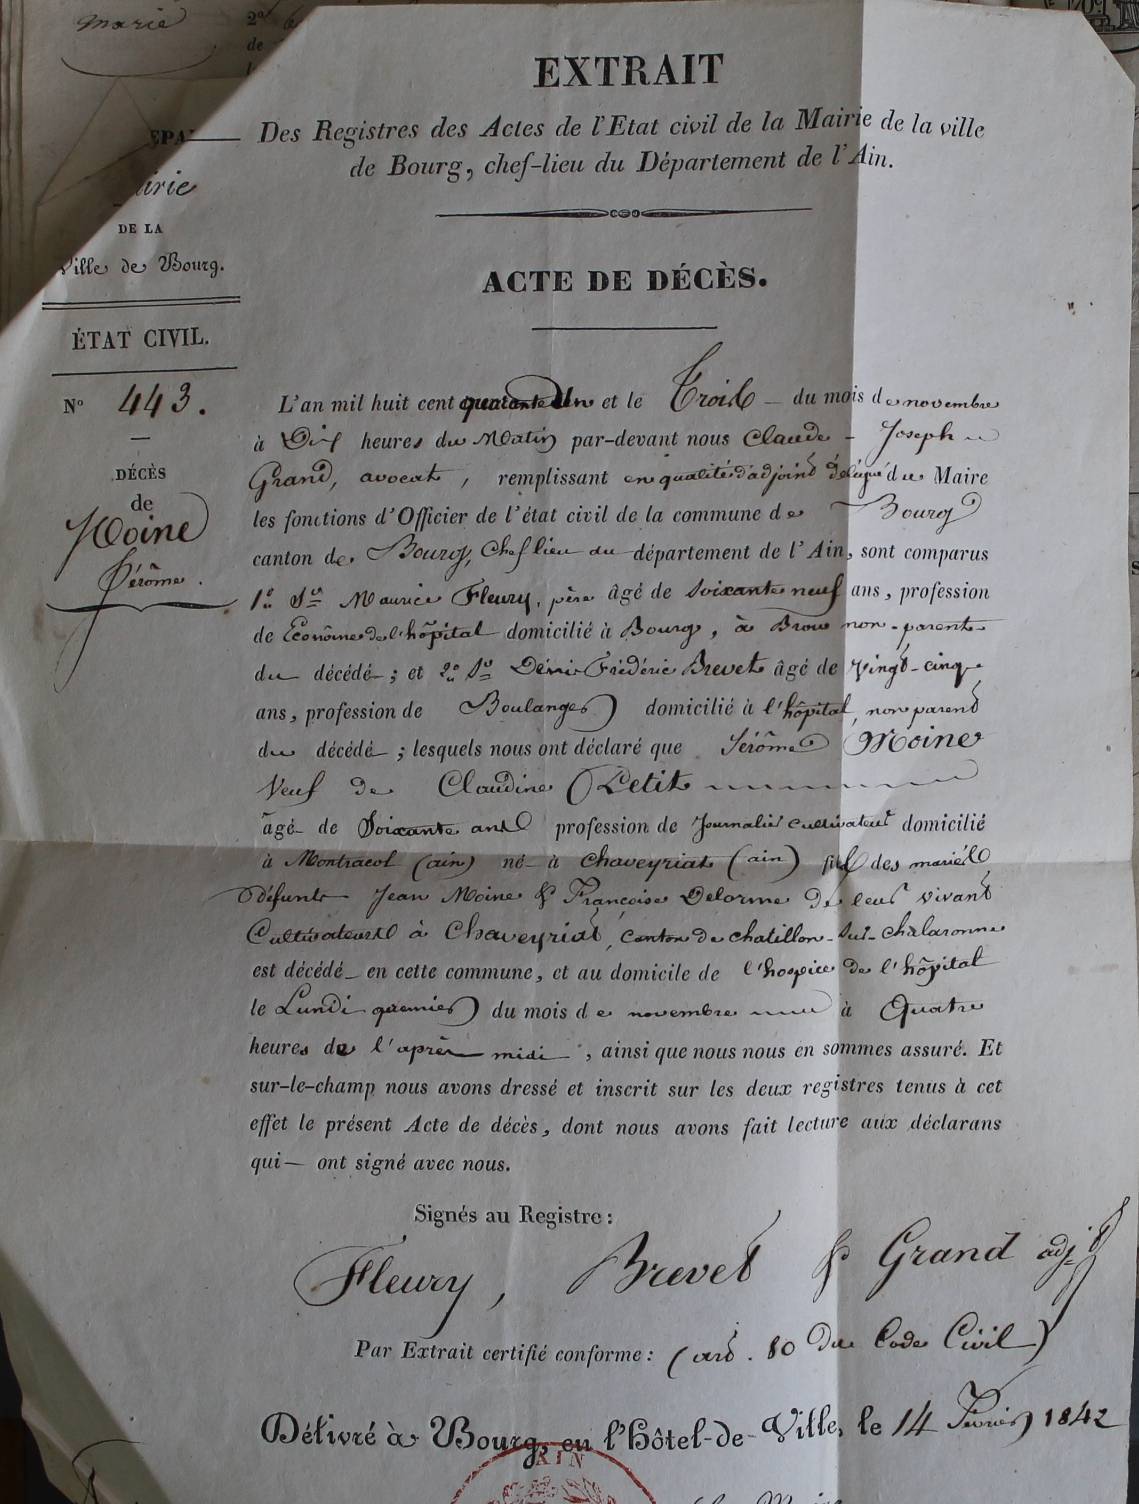 marie
2º
de
EXTRAIT
Des Registres des Actes de l'Etat civil de la Mairie de la ville
de Bourg, chef-lieu du Département de l'Ain.
EPA
irie
DE LA
Ville de Bourg.
ÉTAT CIVIL.
Nº 443.
DÉCÈS
de
Moine
Jérôme.
ACTE DE DÉCÈS.
L'an mil huit cent quarante Un et le Trois du mois de novembre
à Dix heures du Matin par-devant nous Claude - Joseph
Grand, avocat, remplissant en qualité d'adjoint délégué du Maire
les fonctions d'Officier de l'état civil de la commune de Bourg
canton de Bourg, Chef lieu du département de l'Ain, sont comparus
1º Sr Maurice Fleury, père âgé de Soixante neuf ans, profession
de Econôme de l'hôpital domicilié à Bourg, à Brou non-parent
du décédé; et 2º Sr Frédéric Brevet âgé de vingt-cinq
ans, profession de Boulanger domicilié à l'hôpital, non parent
du décédé; lesquels nous ont déclaré que Jérôme Moine
Veuf de Claudine Petit
âgé de Soixante ans profession de Journalier cultivateur domicilié
à Montracol (ain) né à Chaveyriat (ain) fils des mariés
défunts Jean Moine & Françoise Delorme de leur vivant
Cultivateurs à Chaveyriat, canton de chatillon-sur-chalaronne
est décédé en cette commune, et au domicile de l'hospice de l'hôpital
le Lundi premier du mois de novembre à Quatre
heures de l'après midi, ainsi que nous nous en sommes assuré. Et
sur-le-champ nous avons dressé et inscrit sur les deux registres tenus à cet
effet le présent Acte de décès, dont nous avons fait lecture aux déclarans
qui ont signé avec nous.
Signés au Registre:
Fleury, Brevet & Grand adjt
Par Extrait certifié conforme: (art. 80 du Code Civil)
Délivré à Bourg, en l'Hôtel-de-Ville, le 14 Février 1842
AIN